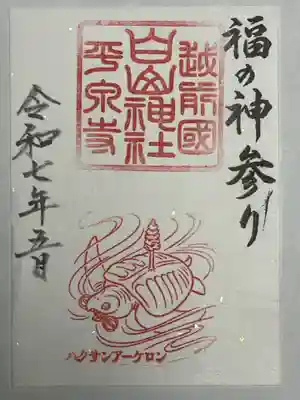 福の神参り
越前國
白山神社
平泉寺
令和七年五月
ハクサンアーケロン